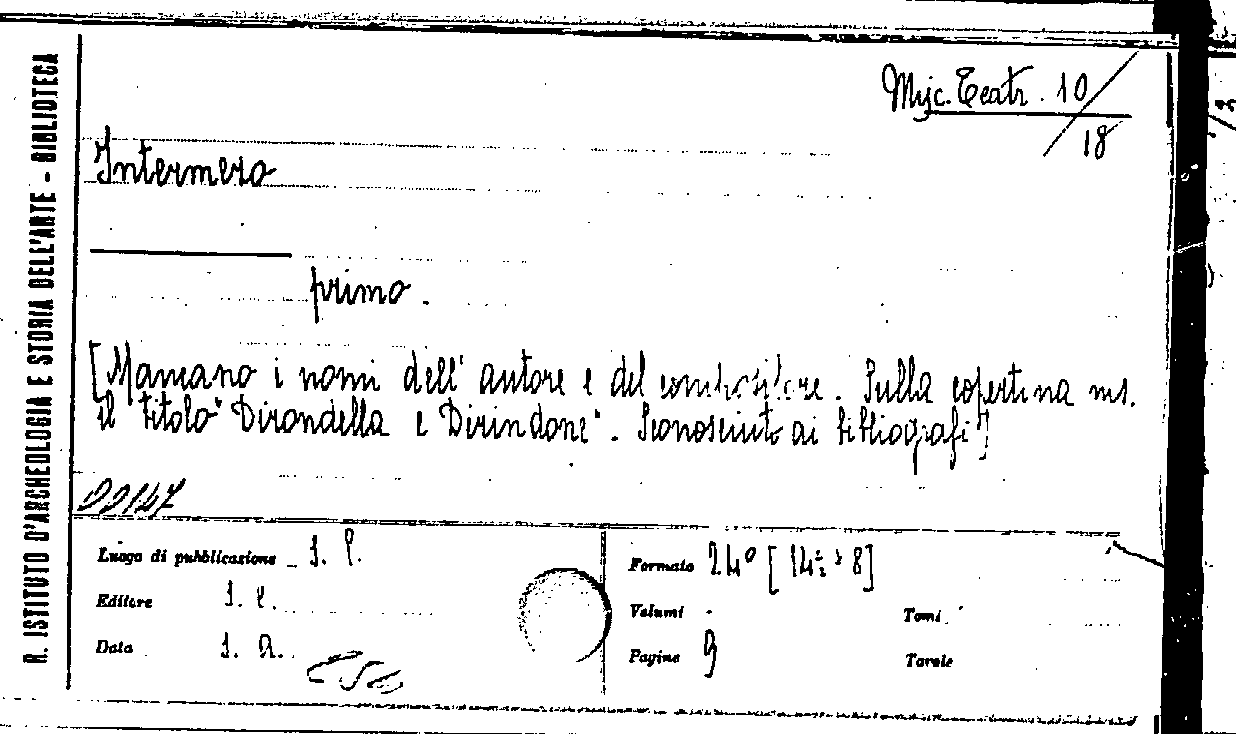 R. ISTITUTO D'ARCHEOLOGIA E STORIA DELL'ARTE - BIBLIOTECA
Misc. Teatr. 10/18
Intermezo
primo.
[Mancano i nomi dell'autore e del compositore. Sulla copertina ms.
il titolo "Dirondella e Dirindone". Sconosciuto ai bibliografi]
Luogo di pubblicazione s. l.
Formato 24°
Editore s. e.
Volumi
Tomi
Data s. a.
Pagine 9
Tavole